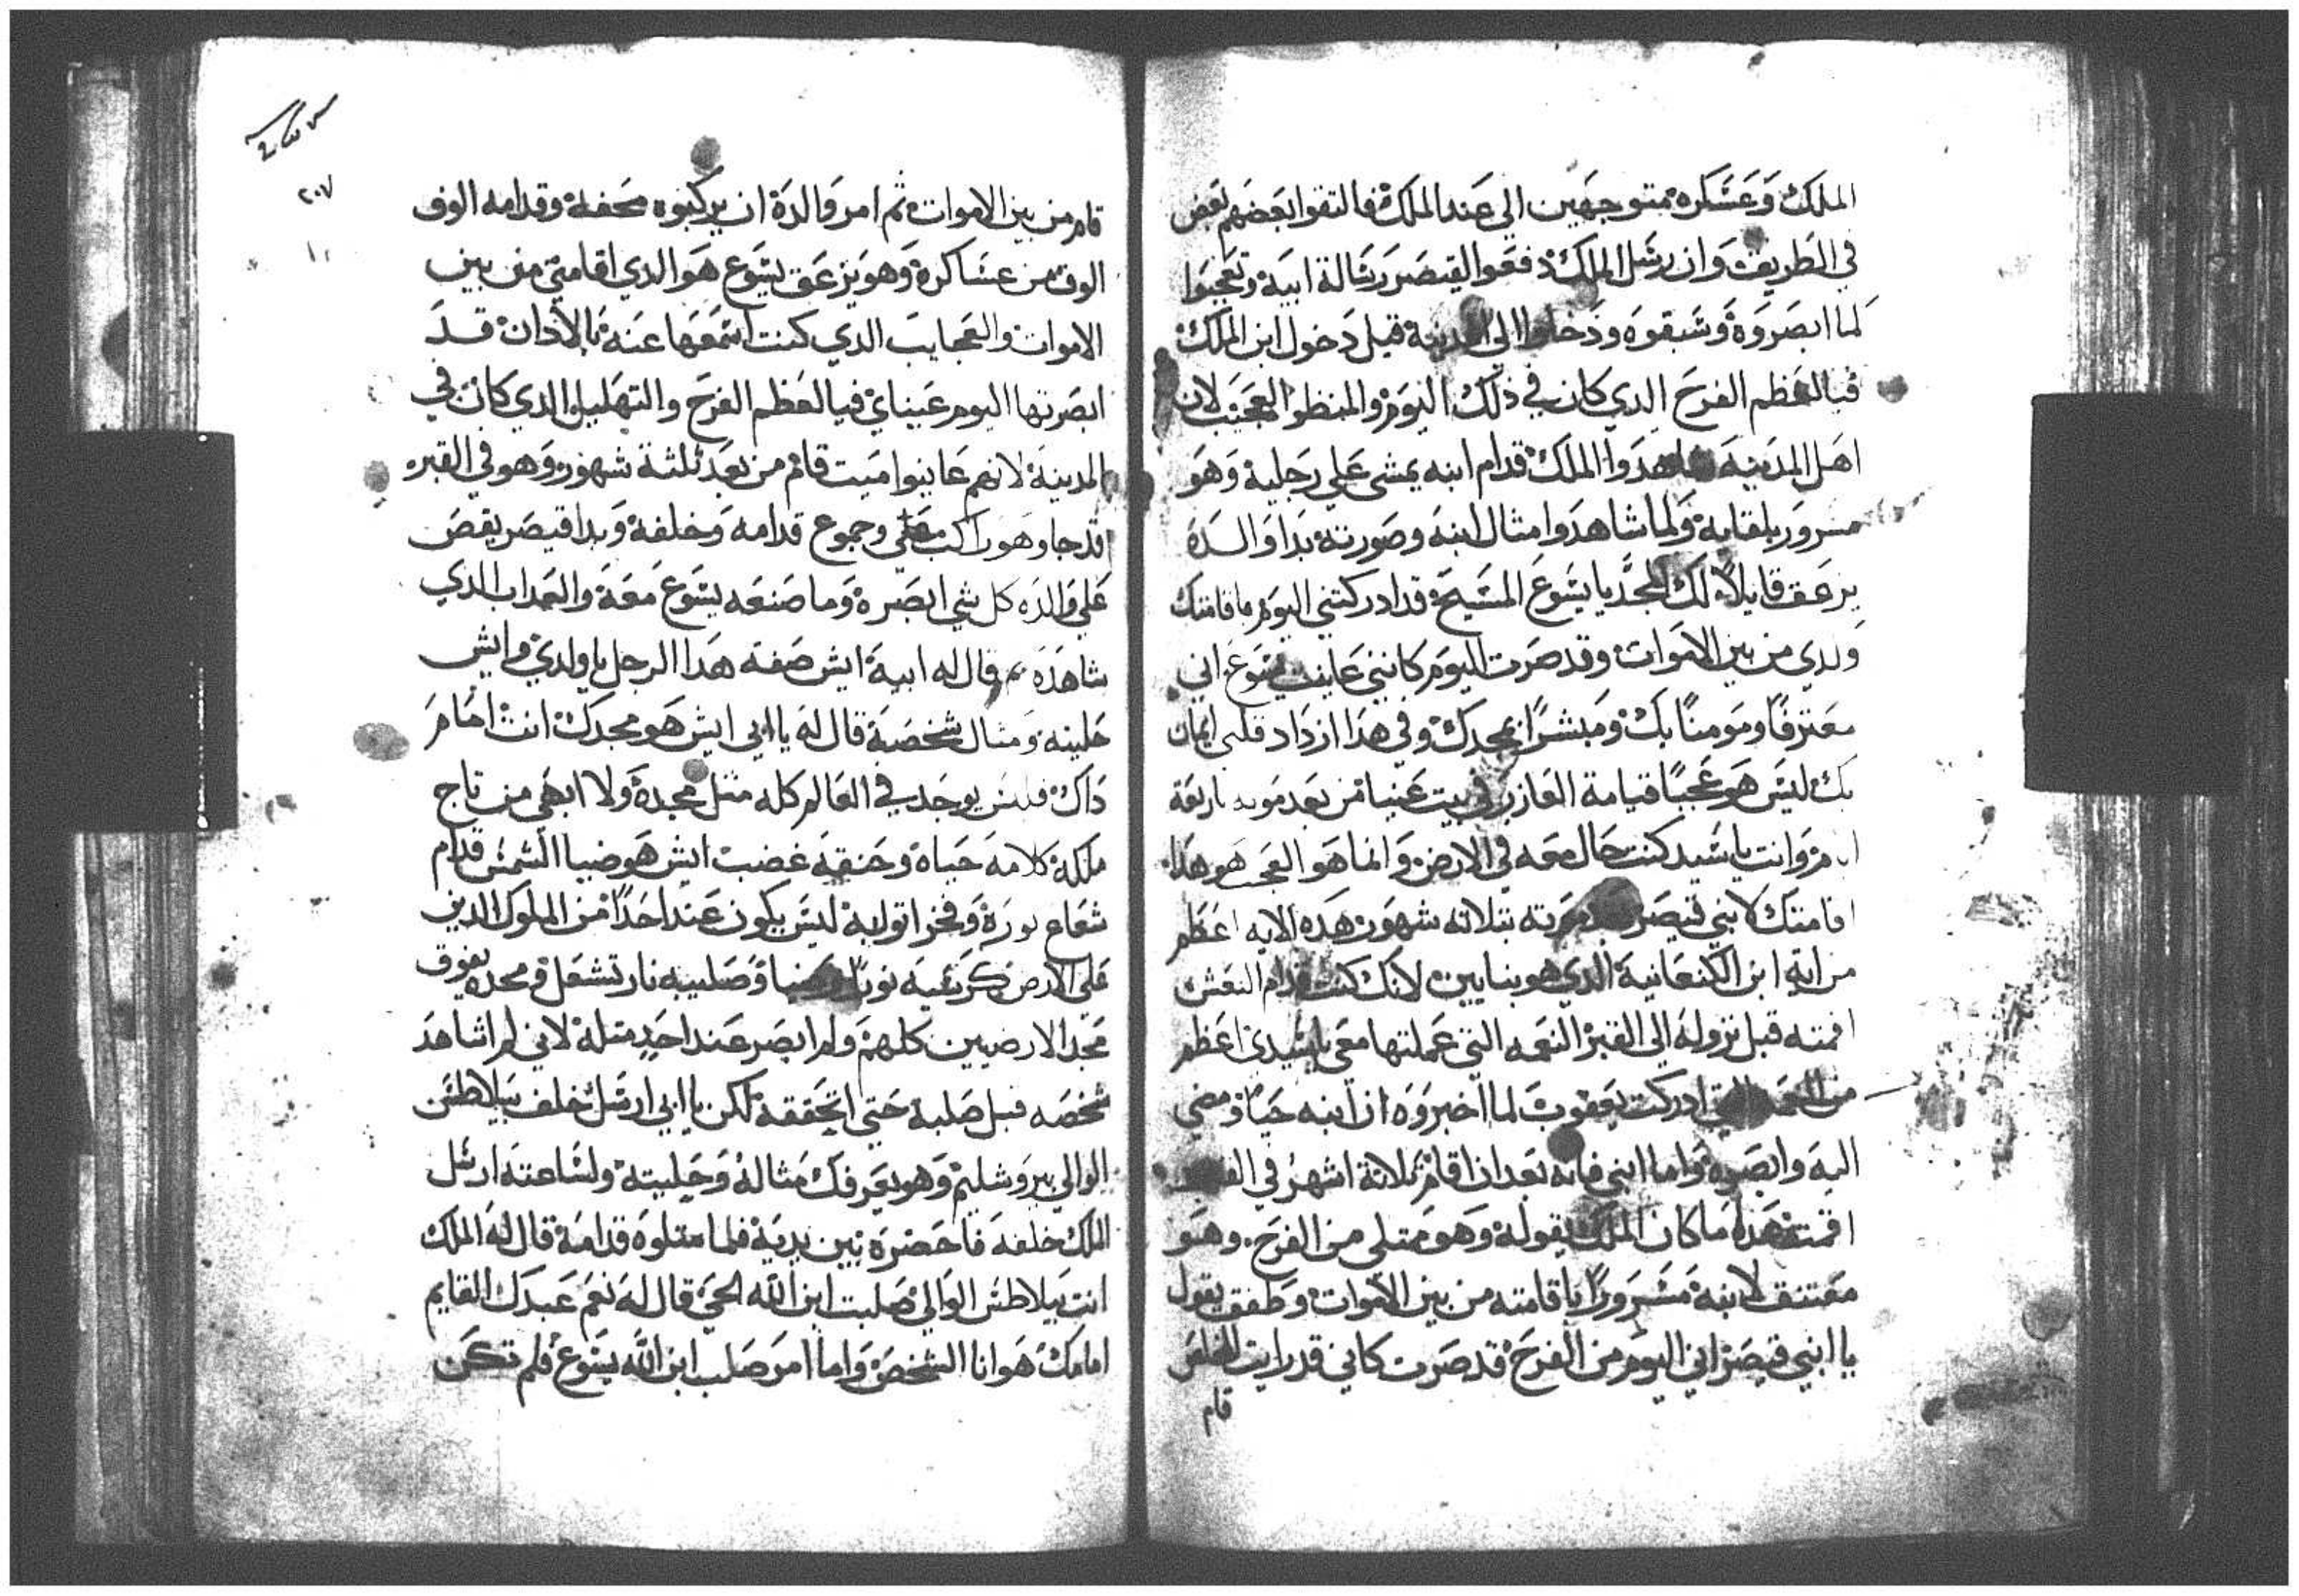 الملك وعسكره متوجهين الي عند الملك فالتقوا بعضهم بعض
في الطريق وان رسل الملك دفعوا القيصر رسالة ابيه وتعجبوا
لما ابصروه وسبقوه ودخلوا الي المدينة قبل دخول ابن الملك
فيالعظم الفرح الدي كان في ذلك اليوم والمنظر العجيب لان
اهل المدينه شاهدوا الملك قدام ابنه يمشي علي رجليه وهو
مسرور بلقايه ولما شاهدوا مثال ابنه وصورته بدا والده
يزعق قايلا لك المجد يا يسوع المسيح قد ادركتني اليوم باقامتك
ولدي من بين الاموات وقد صرت اليوم كانني عاينت يسوع اني
معترفا ومومنا بك ومبشرا بمجدك وفي هدا ازداد قلبي ايمان
بك ليس هو عجبا قيامة العازر في بيت عنيا من بعد موته باربعة
ايام وانت يا سيد كنت حال معه في الارض وانما هو العجب هو هدا
اقامتك لابني قيصر بعد موته بتلاته شهور هده الايه اعظم
من اية ابن الكنعانية الدي هو بنايين لانك كنت قدام النعش
اقمته قبل نزوله الي القبر النعمه التي عملتها معي يا سيدي اعظم
من النعمه التي ادركت يعقوب لما اخبروه ان ابنه حيا ومضي
اليه وابصره واما ابني فانه بعد ان اقام ثلاثة اشهر في القبر
اقمته هدا ما كان الملك يقوله وهو ممتلي من الفرح وهو
معتنق لابنه مسرورا باقامته من بين الاموات وطفق يقول
يا ابني قيصر اني اليوم من الفرح قد صرت كاني قد رايت المخلص
قام
٢٠٧
قام من بين الاموات ثم امر والده ان يركبوه محفه وقدامه الوف
الوف من عساكره وهو يزعق يسوع هو الدي اقامني من بين
الاموات والعجايب الدي كنت اسمعها عنه بالاذان قد
ابصرتها اليوم عيناي فيالعظم الفرح والتهليل الدي كان في
المدينة لانهم عاينوا ميت قام من بعد ثلثة شهور وهو في القبر
قد جا وهو راكب وجموع قدامه وخلفه وبدا قيصر يقص
علي والده كل شي ابصره وما صنعه يسوع معه والعداب الدي
شاهده ثم قال له ابيه ايش صفة هدا الرجل يا ولدي وايش
حليته ومثال شخصه قال له يا ابي ايش هو مجدك انت امام
داك فليس يوجد في العالم كله مثل مجده ولا ابهي من تاج
ملكه كلامه حياه وحنقه غضب ايش هو ضيا الشمس قدام
شعاع نوره وفخر اقواله ليس يكون عند احدا من الملوك الدين
علي الارض كرسيه نورا وضيا وصليبه نار تشعل ومجده يفوق
مجد الارضيين كلهم ولم ابصر عند احد مثله لاني لم اشاهد
شخصه قبل صلبه حتي اتحققه لكن يا ابي ارسل خلف بيلاطس
الوالي بيروشليم وهو يعرفك مثاله وحليته ولساعته ارسل
الملك خلفه فاحضره بين يديه فلما متلوه قدامه قال له الملك
انت بيلاطس الوالي صلبت ابن الله الحي قال له نعم عبدك القايم
امامك هو انا الشخص واما امر صلب ابن الله يسوع فلم تكن